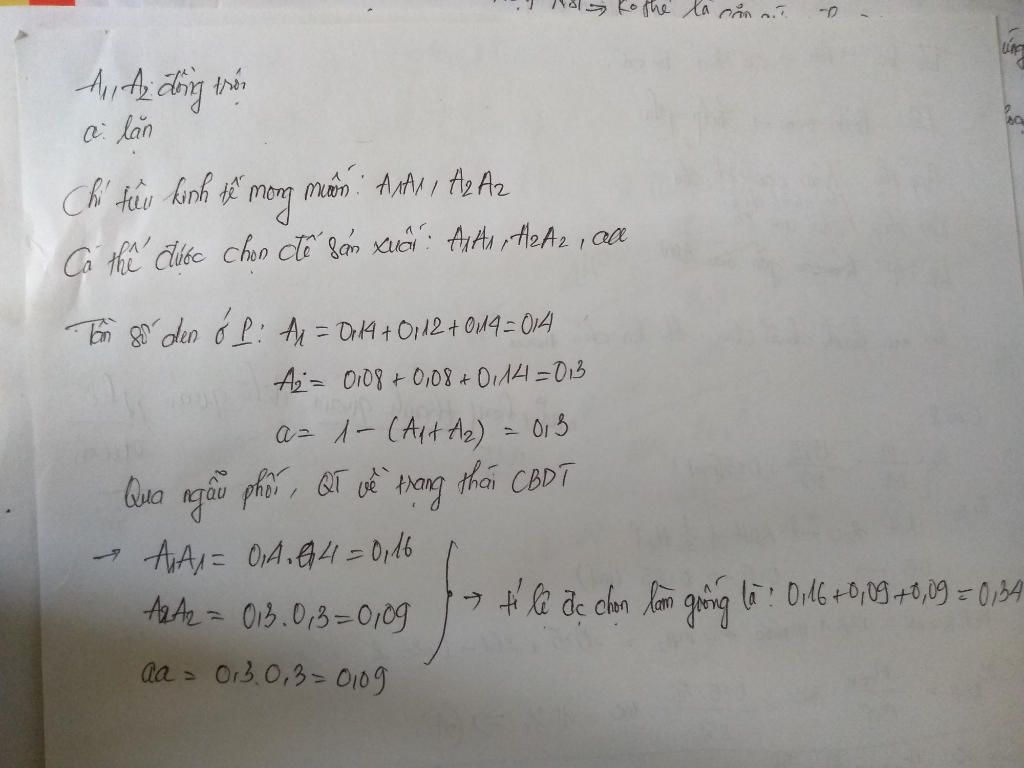 Kơ thể là
A1, A2: đồng trội
a: lặn
Chỉ tiêu kinh tế mong muốn: A1A1, A2A2
Cá thể được chọn để sản xuất: A1A1, A2A2, aa
Tần số alen ở P: A1 = 0,14+0,12+0,14=0,4
A2 = 0,08+0,08+0,14=0,3
a = 1 - (A1+A2) = 0,3
Qua ngẫu phối, QT về trạng thái CBDT
→ A1A1 = 0,4.0,4 = 0,16
A2A2 = 0,3.0,3=0,09
→ tỉ lệ đc chọn làm giống là: 0,16+0,09+0,09=0,34
aa = 0,3.0,3=0,09